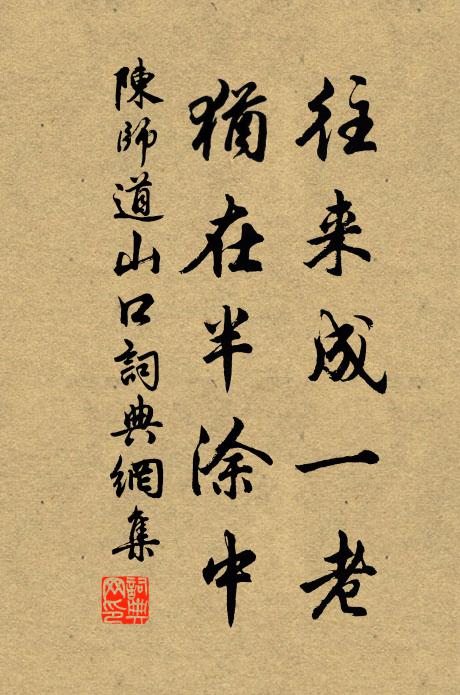 往来成一老
猶在半涂中
陳師道山口詞典網集
詞典网印